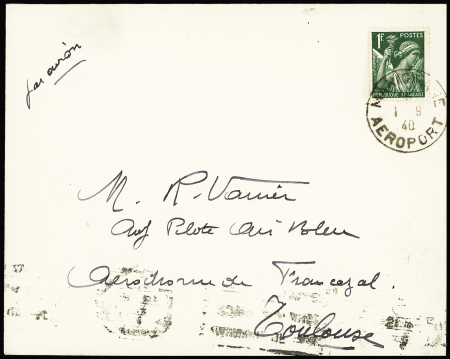 par avion
1F POSTES
REPUBLIQUE FRANCAISE
1 9
40
AEROPORT
M. R. Vanier
Pilote Air Bleu
Aérodrome de Francazal.
Toulouse